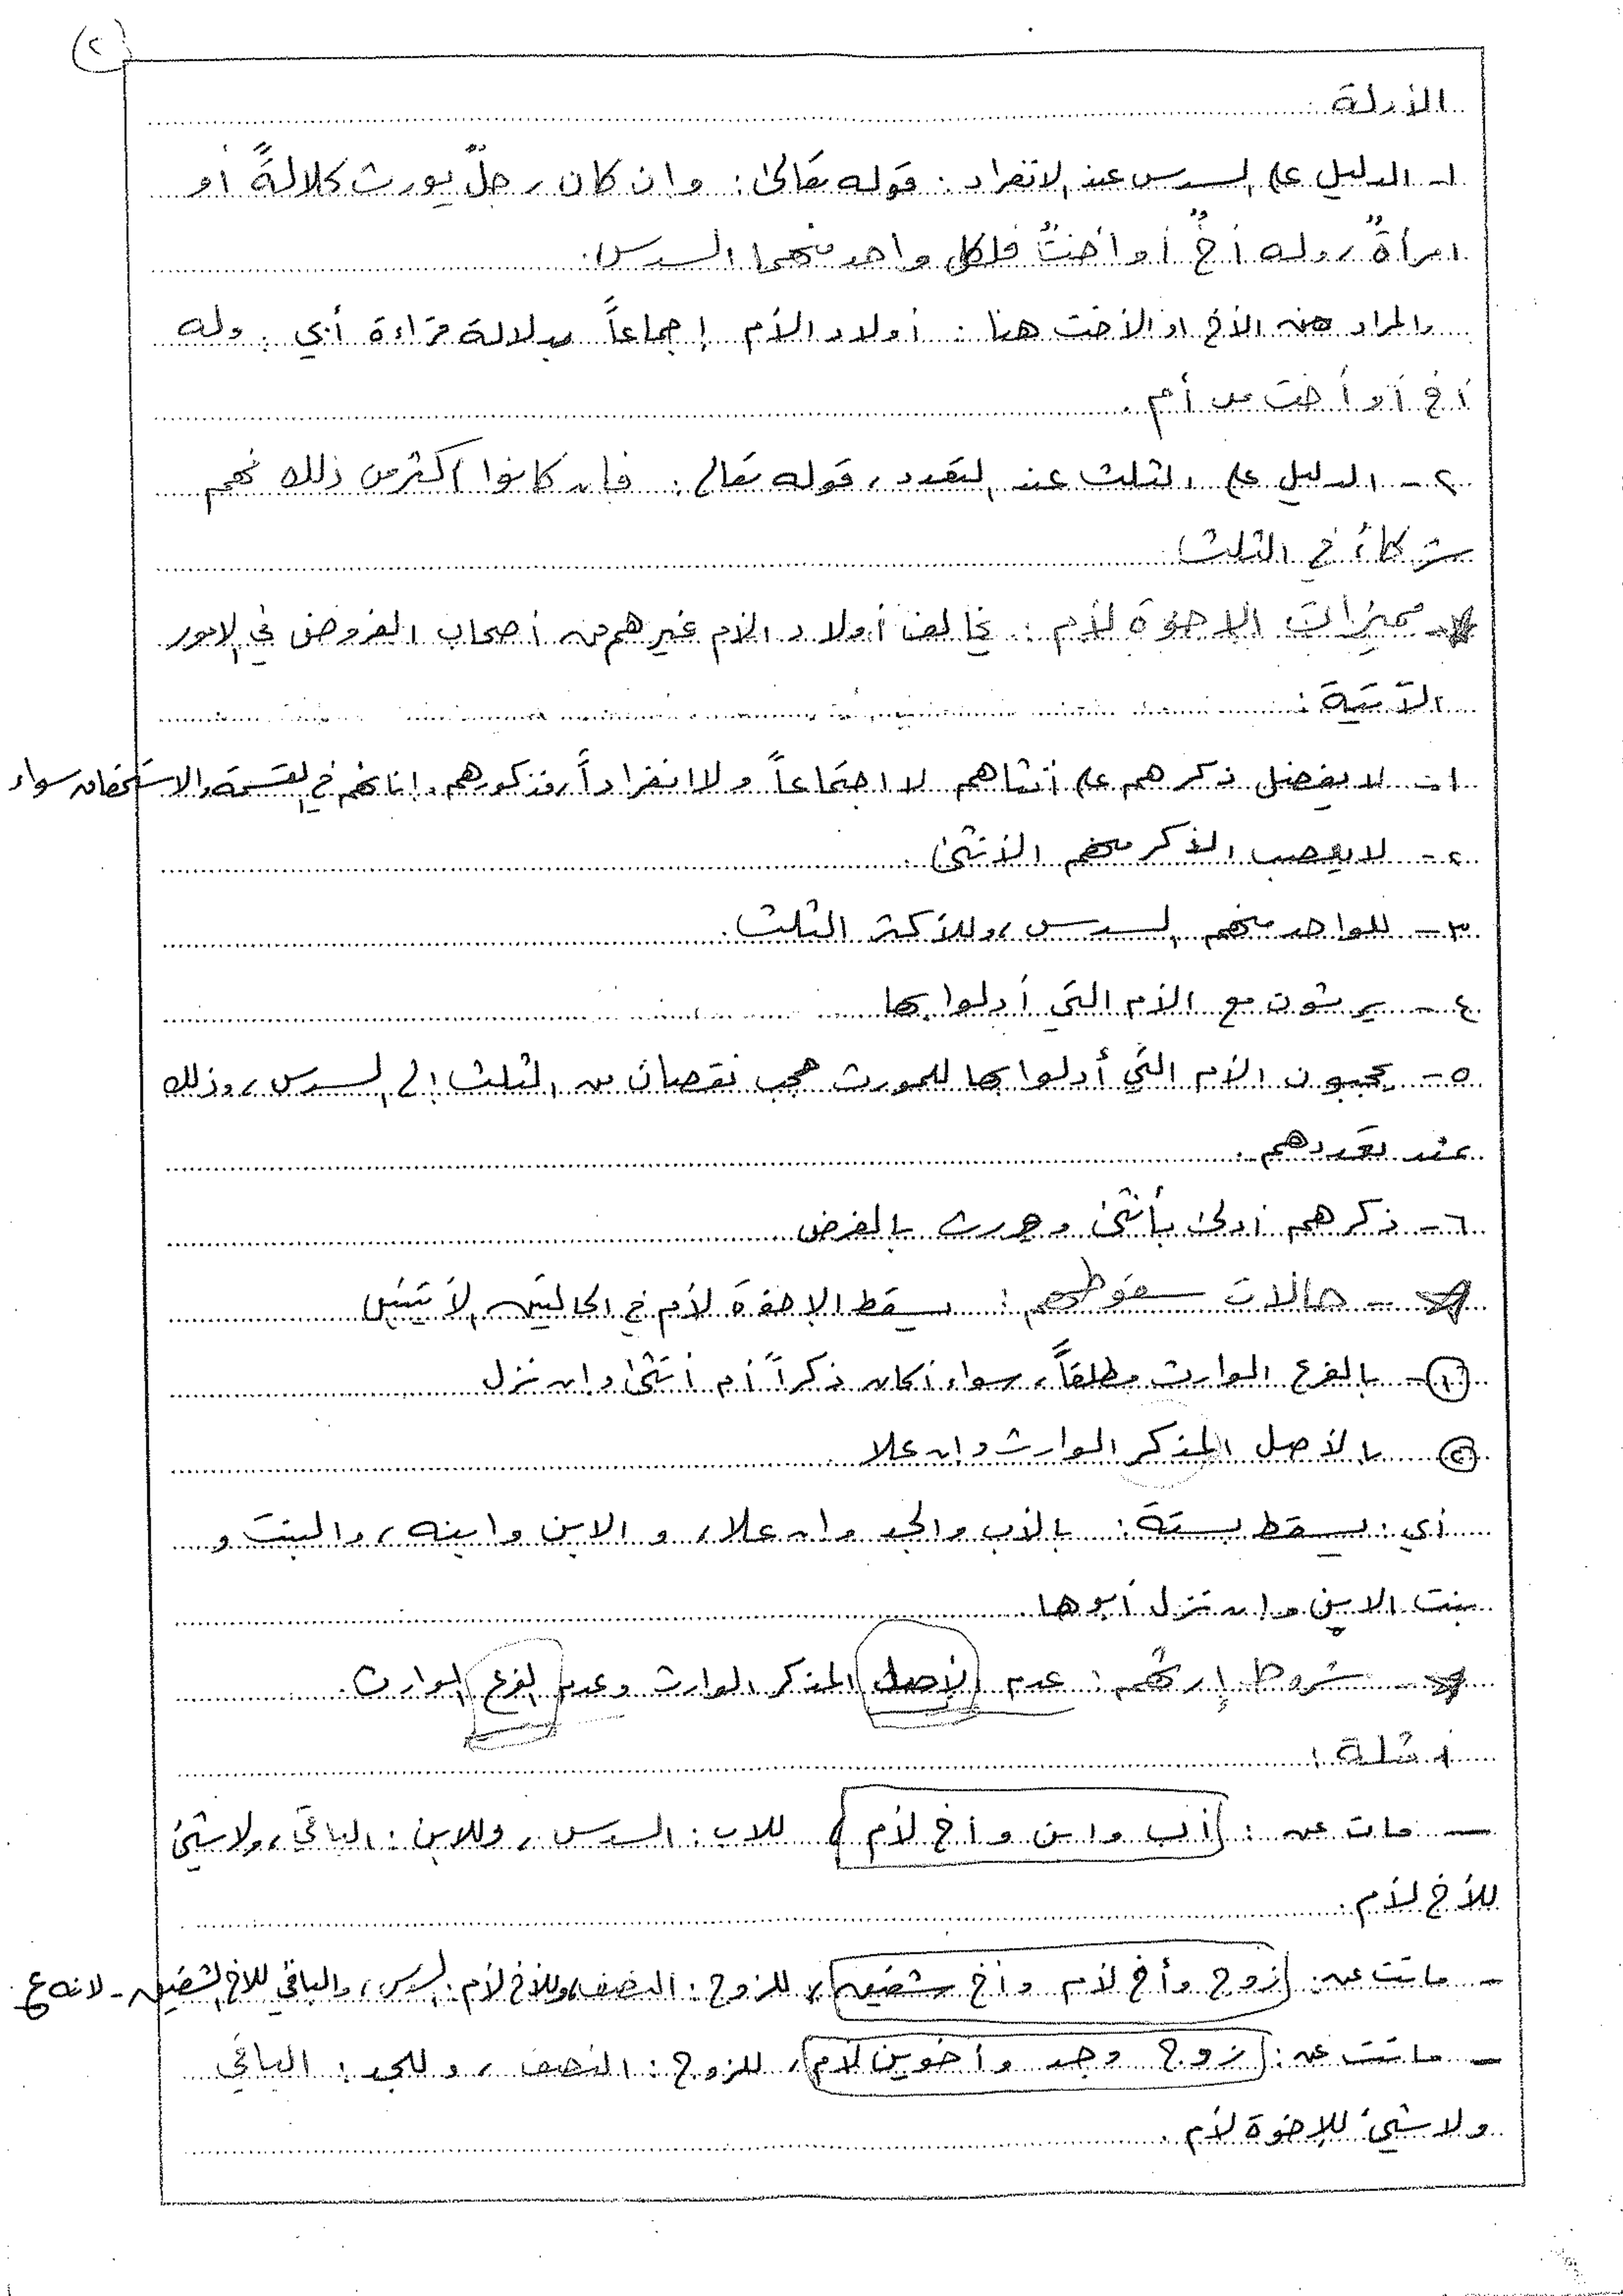 (٢)
الأدلة
١- الدليل على السدس عند الانفراد: قوله تعالى: وان كان رجلٌ يورث كلالةً أو
امرأةٌ، وله أخٌ أو أختٌ فلكل واحد منهما السدس.
والمراد من الأخ او الأخت هنا: أولاد الأم إجماعاً بدلالة قراءة أبي: وله
أخ أو أخت من أم.
٢- الدليل على الثلث عند التعدد، قوله تعالى: فإن كانوا أكثر من ذلك فهم
شركاءُ في الثلث
- مميزات الإخوة لأم: يخالف أولاد الأم غيرهم من أصحاب الفروض في الامور
الآتية:
١- لا يفضل ذكرهم على أنثاهم لا اجتماعاً ولا انفراداً، فذكورهم وإناثهم في القسمة والاستحقاق سواء
٢- لا يعصب الذكر منهم الأنثى.
٣- للواحد منهم السدس، وللأكثر الثلث.
٤- يرثون مع الأم التي أدلوا بها
٥- يحجبون الأم التي أدلوا بها للمورث حجب نقصان من الثلث إلى السدس، وذلك
عند تعددهم.
٦- ذكرهم أدلى بأنثى وهو يرث بالفرض
- حالات سقوطهم: يسقط الإخوة لأم في الحالتين الآتيتين
١- بالفرع الوارث مطلقاً، سواء أكان ذكراً أم أنثى وإن نزل
٢ بالأصل المذكر الوارث وإن علا
أي: يسقط بستة: بالأب والجد وإن علا، و الابن وابنه، والبنت و
بنت الابن وإن نزل أبوها.
- شروط إرثهم: عدم الأصل المذكر الوارث وعدم الفرع الوارث.
أمثلة:
- مات عن: (أب وابن وأخ لأم) للاب: السدس، وللابن: الباقي، ولا شيئ
للأخ لأم.
- ماتت عن: (زوج وأخ لأم وأخ شقيق)، للزوج: النصف، وللأخ لأم: السدس، والباقي للاخ الشقيق - لانه ع
- ماتت عن: (زوج وجد وأخوين لأم)، للزوج: النصف، وللجد: الباقي
ولا شيئ للإخوة لأم.